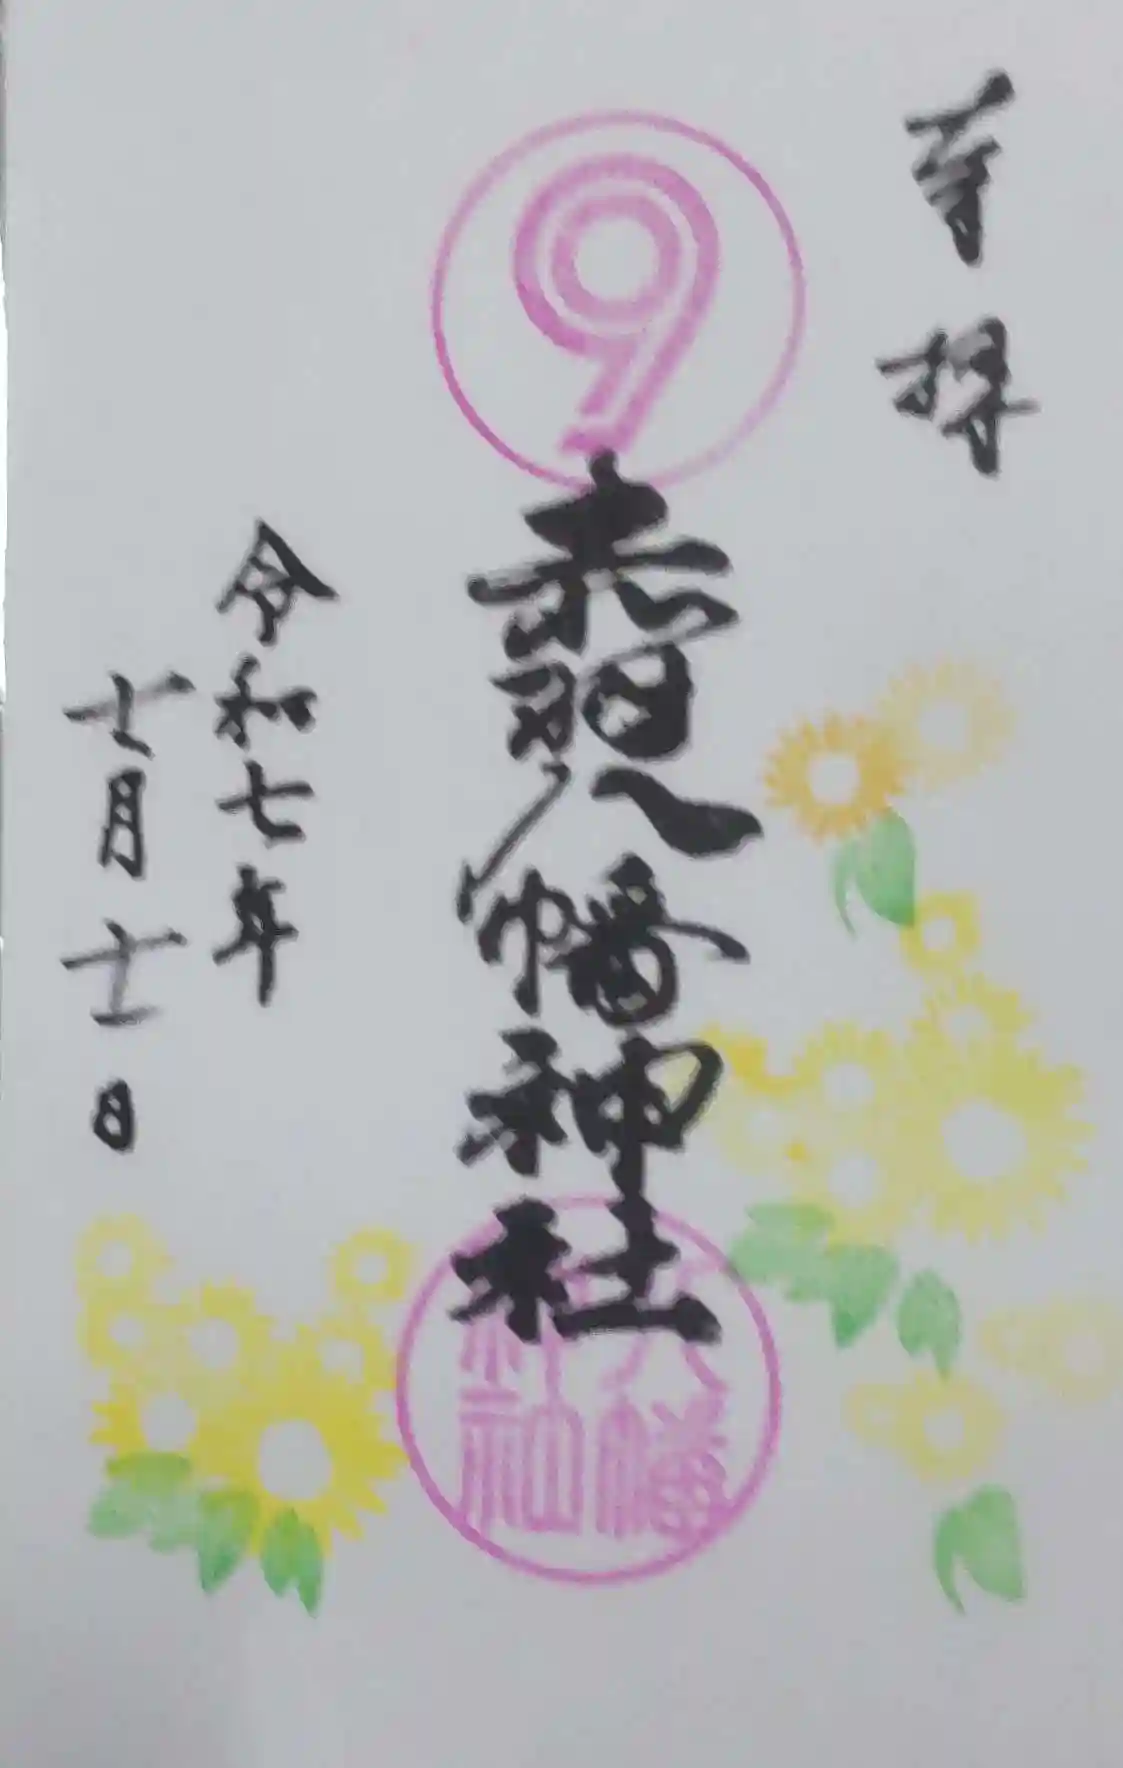 奉拝
9
赤羽八幡神社
八幡
令和七年
十月十一日